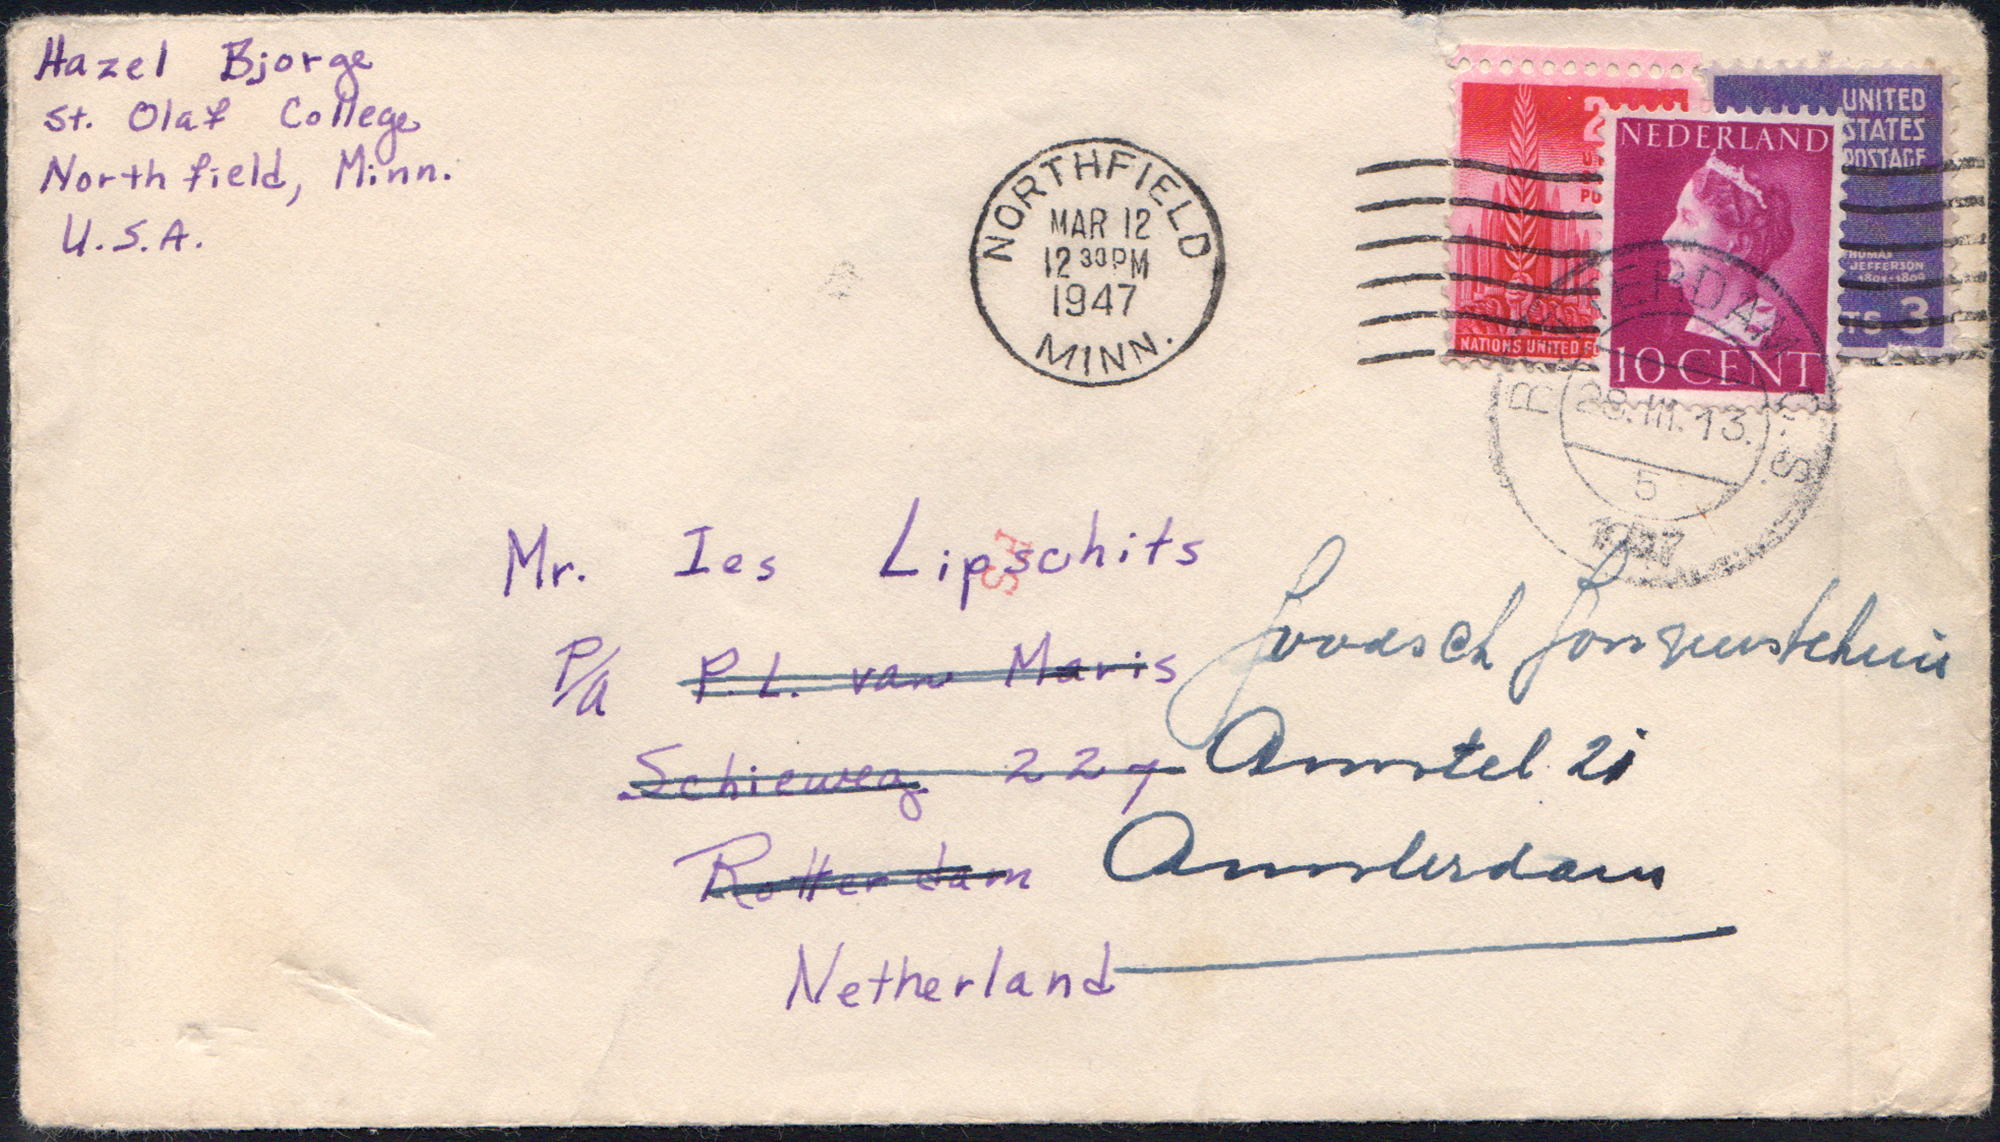 Hazel Bjorge
St. Olaf College
Northfield, Minn.
U.S.A.
NORTHFIELD
MAR 12
12 30 PM
1947
MINN.
2
NATIONS UNITED
NEDERLAND
10 CENT
UNITED
STATES
POSTAGE
THOMAS
JEFFERSON
1801-1809
TS 3
ROTTERDAM
28.III.13.
5
1947
Mr. Ies Lipschits
P/a P.L. van Maris
Schieweg 227
Rotterdam
Netherland
Joodsch
Amstel 21
Amsterdam